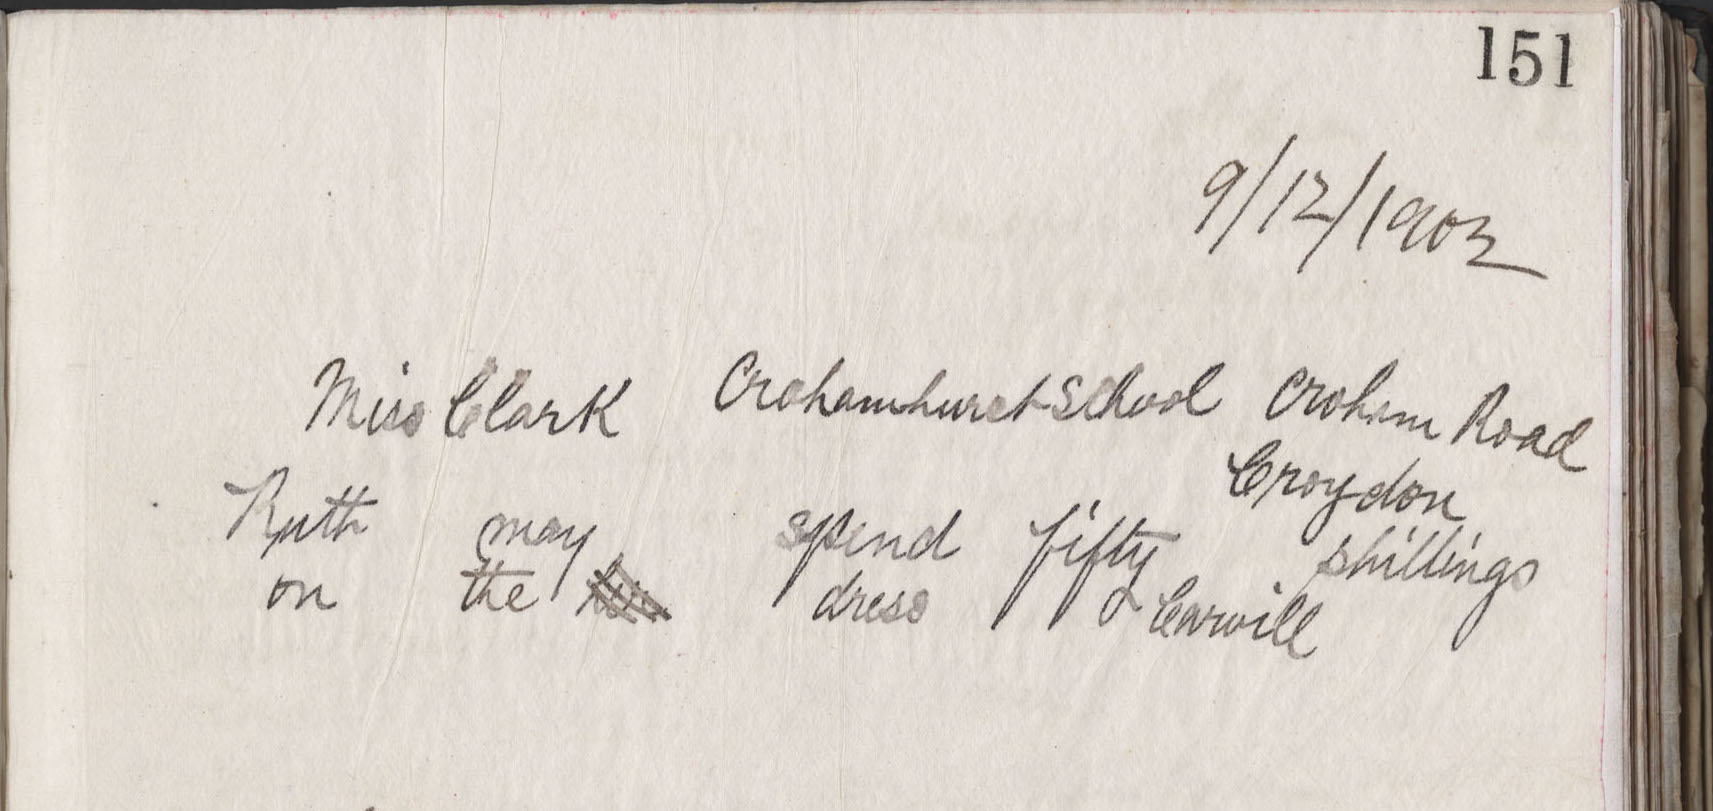 151
9/12/1903
Miss Clark Crohamhurst School Croham Road
Croydon
Ruth may spend fifty shillings
on the dress Carvill